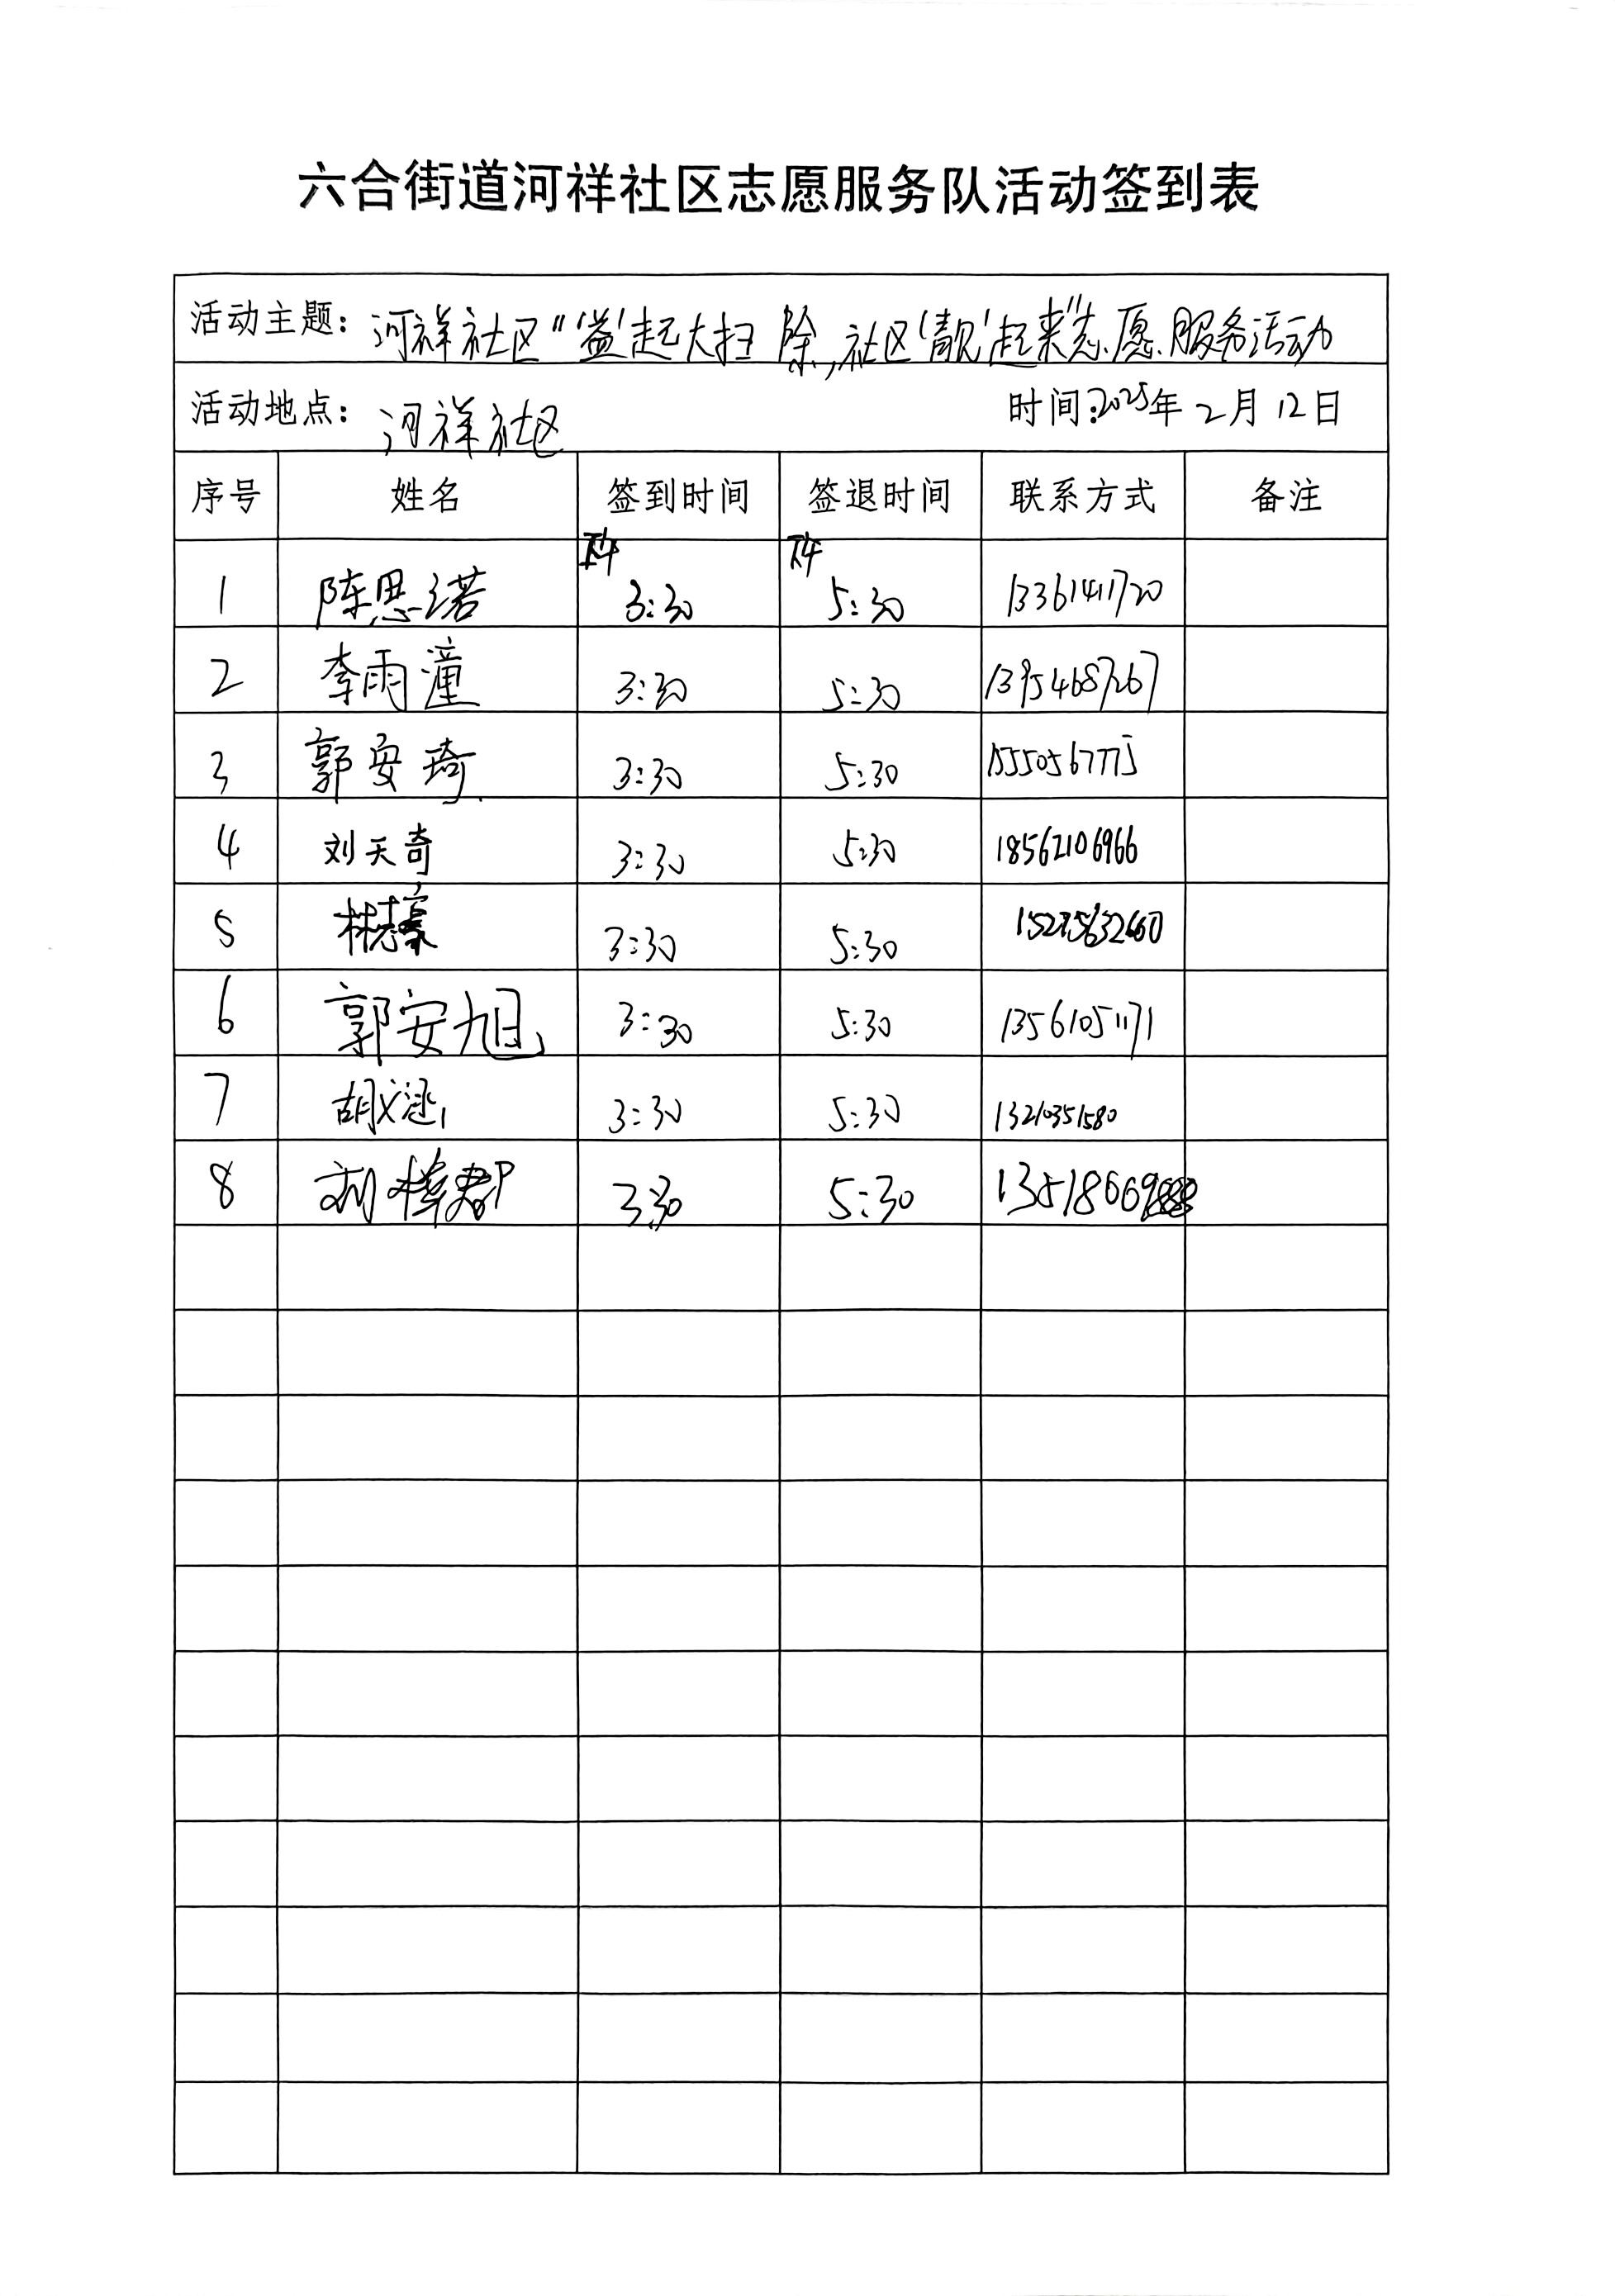 六合街道河祥社区志愿服务队活动签到表
活动主题：河祥社区"'益'起大扫除,社区'靓'起来"志愿服务活动
活动地点：河祥社区 时间:2025年2月12日
序号 姓名 签到时间 签退时间 联系方式 备注
1 陈思诺 下午3:30 下午5:30 13361411720
2 李雨潼 3:30 5:30 13954687267
3 郭安琦 3:30 5:30 15550567775
4 刘天奇 3:30 5:30 18562106966
5 林志豪 3:30 5:30
6 郭安旭 3:30 5:30 13561051171
7 胡义涵 3:30 5:30 13210351580
8 刘梓郡 3:30 5:30